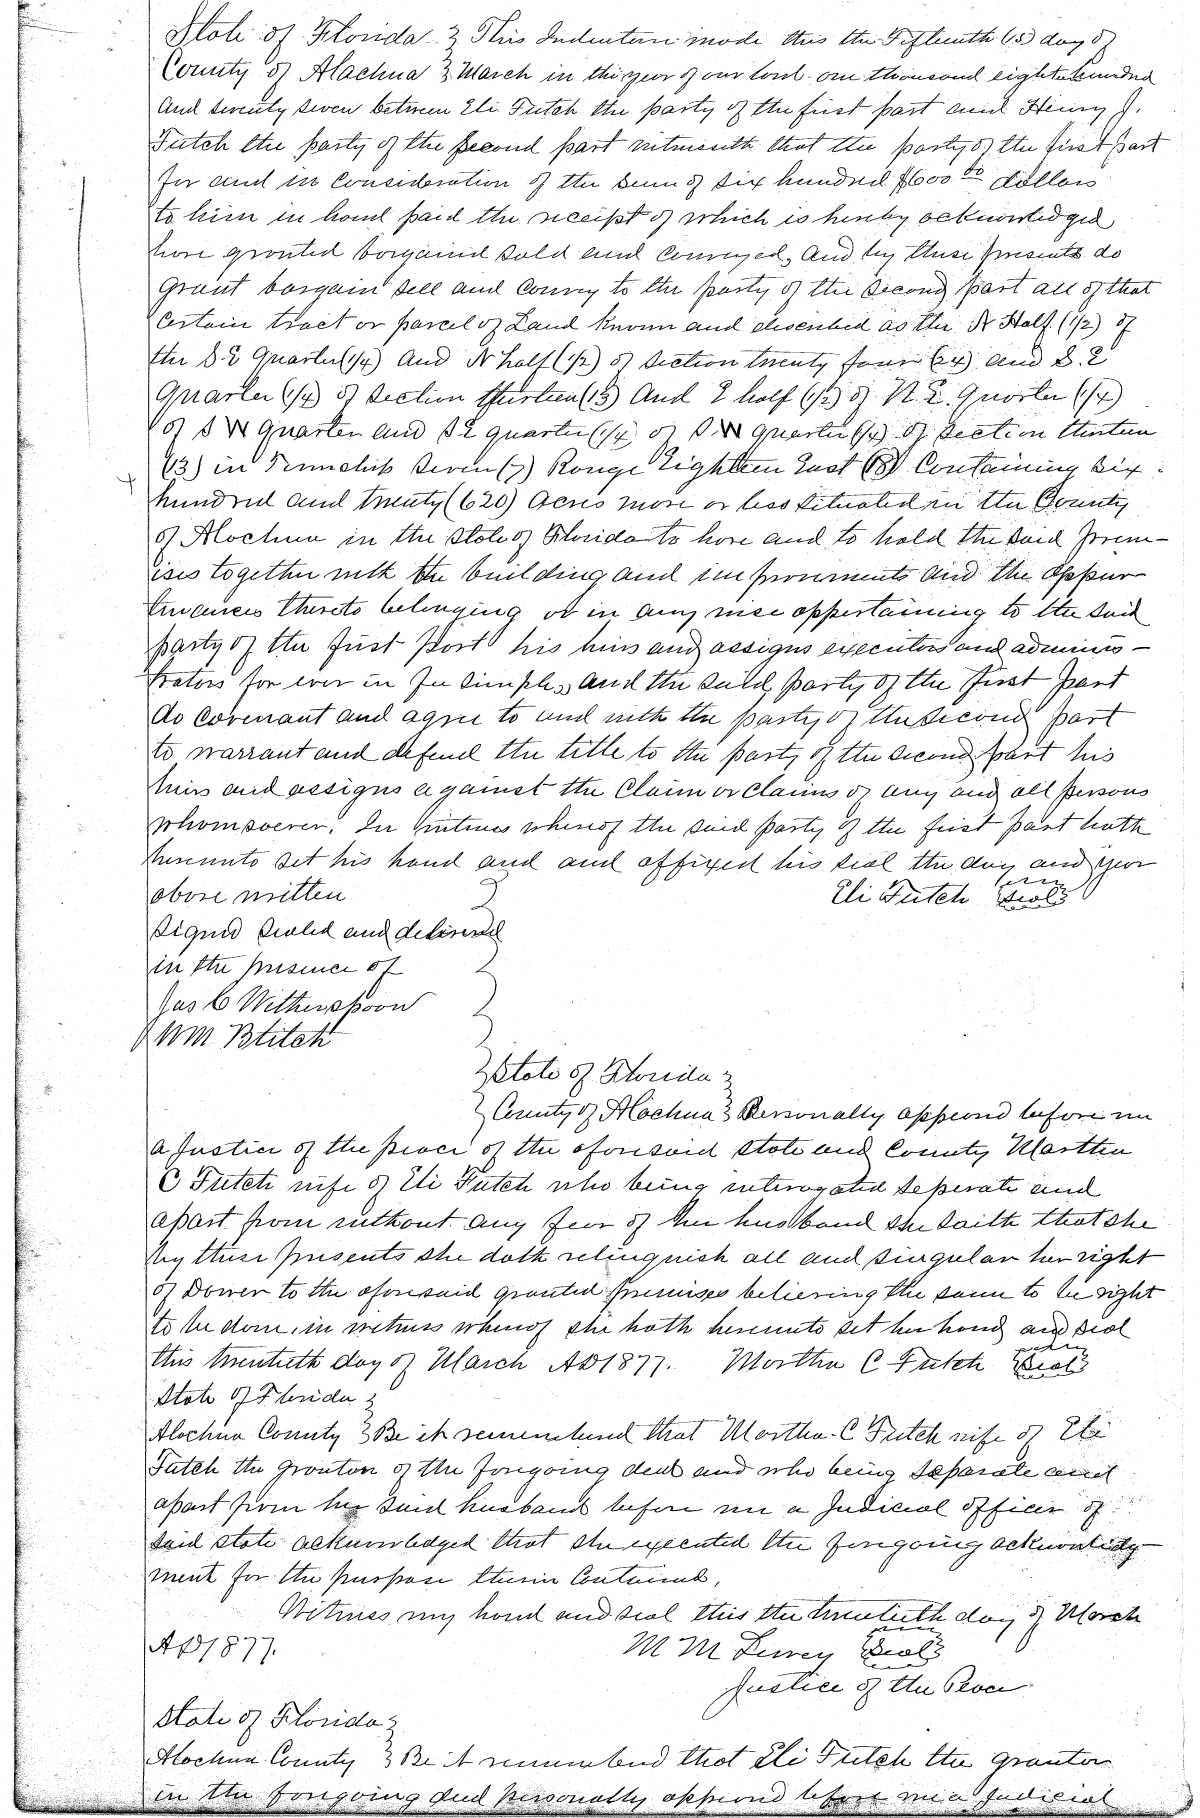 State of Florida } This Indenture made this the Fifteenth (15) day of
County of Alachua } March in the year of our lord one thousand eight hundred
And seventy seven between Eli Futch the party of the first part and Henry J.
Futch the party of the second part witnesseth that the party of the first part
for and in consideration of the sum of six hundred $600 00 dollars
to him in hand paid the receipt of which is hereby acknowledged
have granted bargained sold and conveyed, And by these presents do
grant bargain sell and convey to the party of the second part all of that
certain tract or parcel of Land known and described as the N Half (1/2) of
the S.E Quarter (1/4) And N half (1/2) of Section twenty four (24) and S.E
Quarter (1/4) of Section thirteen (13) And E half (1/2) of N.E. Quarter (1/4)
of S W Quarter and S E quarter (1/4) of S W quarter (1/4) of Section thirteen
(13) in Township Seven (7) Range Eighteen East (18) Containing Six
hundred and twenty (620) Acres more or less situated in the County
of Alachua in the State of Florida to have and to hold the said prem-
ises together with the building and improvments and the appur
tenances thereto belonging or in any wise appertaining to the said
party of the first part his heirs and assigns executors and adminis-
trators for ever in fee simple, and the said party of the first part
do covenant and agree to and with the party of the second part
to warrant and defend the title to the party of the second part his
heirs and assigns against the Claim or claims of any and all persons
whomsoever. In witness whereof the said party of the first part hath
hereunto set his hand and and affixed his seal the day and year
above written } Eli Futch Seal
Signed Sealed and delivered
in the presence of
Jas C Witherspoon
WM Btitch
State of Florida }
County of Alachua } Personally appeard before me
a Justice of the peace of the aforesaid state and County Martha
C Futch wife of Eli Futch who being interogated seperate and
apart from without any fear of her husband she saith that she
by these presents she doth relinquish all and singular her right
of Dower to the aforesaid granted premises believing the same to be right
to be done. in witness whereof she hath hereunto set her hand and seal
this twentieth day of March AD 1877. Martha C Futch Seal
State of Florida }
Alachua County } Be it rememberd that Martha. C Futch wife of Eli
Futch the grantor of the foregoing deed and who being separate and
apart from her said husband before me a Judicial officer of
said state acknowledged that she executed the foregoing acknowledg-
ment for the purpose therein Contained,
Witness my hand and seal this the twentieth day of March
AD 1877. M M Seal
Justice of the Peace
State of Florida }
Alachua County } Be it rememberd that Eli Futch the grantor
in the foregoing deed personally appeard before me a Judicial